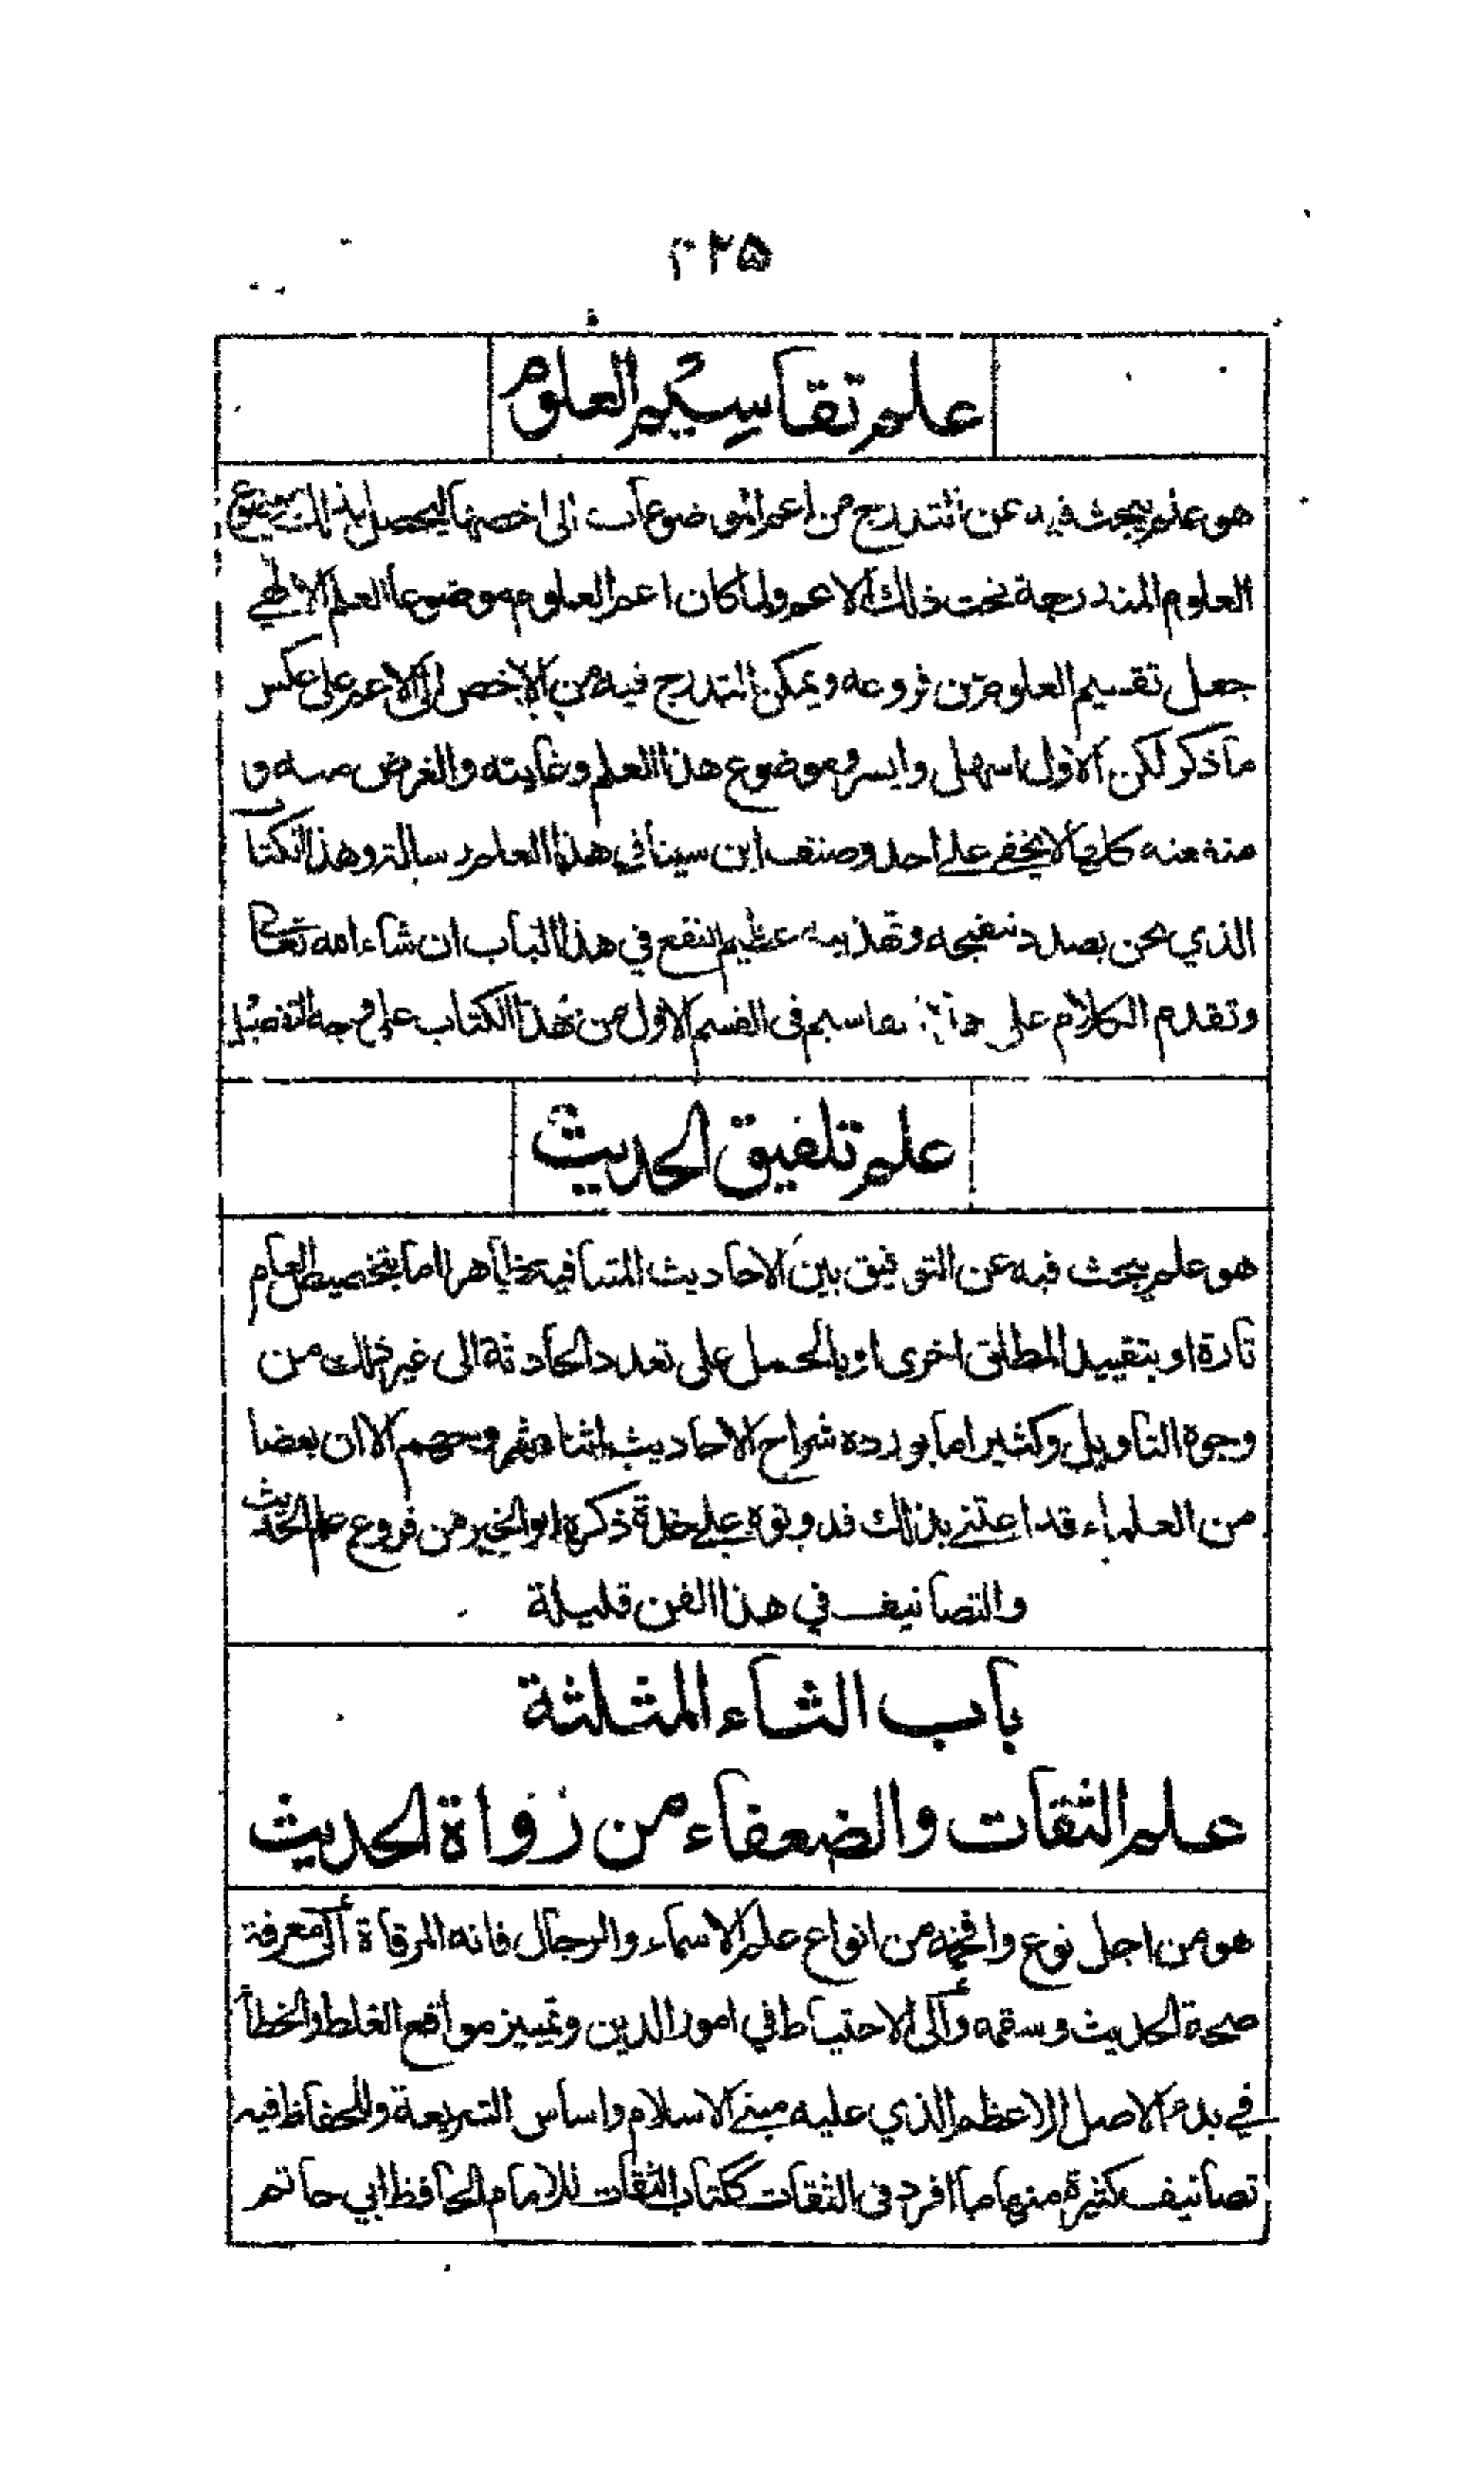 ۴۲۵
علم تقاسيم العلوم
هو علم يبحث فيه عن التدرج من اعم الموضوعات الى اخصها ليحصل بذلك موضوع
العلوم المندرجة تحت ذلك الاعم ولما كان اعم العلوم موضوعا العلم الالهي
جعل تقسيم العلوم من فروعه ويمكن التدرج فيه من الاخص الى الاعم على عكس
ما ذكر لكن الاول اسهل وايسر وموضوع هذا العلم وغايته والغرض منه و
منفعته كلها لا يخفى على احد وصنف ابن سينا في هذا العلم رسالة وهذا الكتاب
الذي نحن بصدد تنقيحه وتهذيبه عظيم النفع في هذا الباب ان شاء الله تعالى
وتقدم الكلام على تقاسيم في القسم الاول من هذا الكتاب على وجه التفصيل
علم تلفيق الحديث
هو علم يبحث فيه عن التوفيق بين الاحاديث المتنافية ظاهرا اما بتخصيص العام
تارة او بتقييد المطلق اخرى او بالحمل على تعدد الحادثة الى غير ذلك من
وجوة التاويل وكثيرا ما يورده شراح الاحاديث اثناء شروحهم الا ان بعضا
من العلماء قد اعتنى بذلك فدونوه على حدة ذكره ابو الخير من فروع علم الحديث
والتصانيف في هذا الفن قليلة
باب الثاء المثلثة
علم الثقات والضعفاء من رواة الحديث
هو من اجل نوع وافخمه من انواع علم الاسماء والرجال فانه المرقاة الى معرفة
صحة الحديث وسقمه والى الاحتياط في امور الدين وتمييز مواقع الغلط والخطأ
في بدء الاصل الاعظم الذي عليه مبنى الاسلام واساس الشريعة وللحفاظ فيه
تصانيف كثيرة منها ما افرد في الثقات ككتاب الثقات للامام الحافظ ابي حاتم